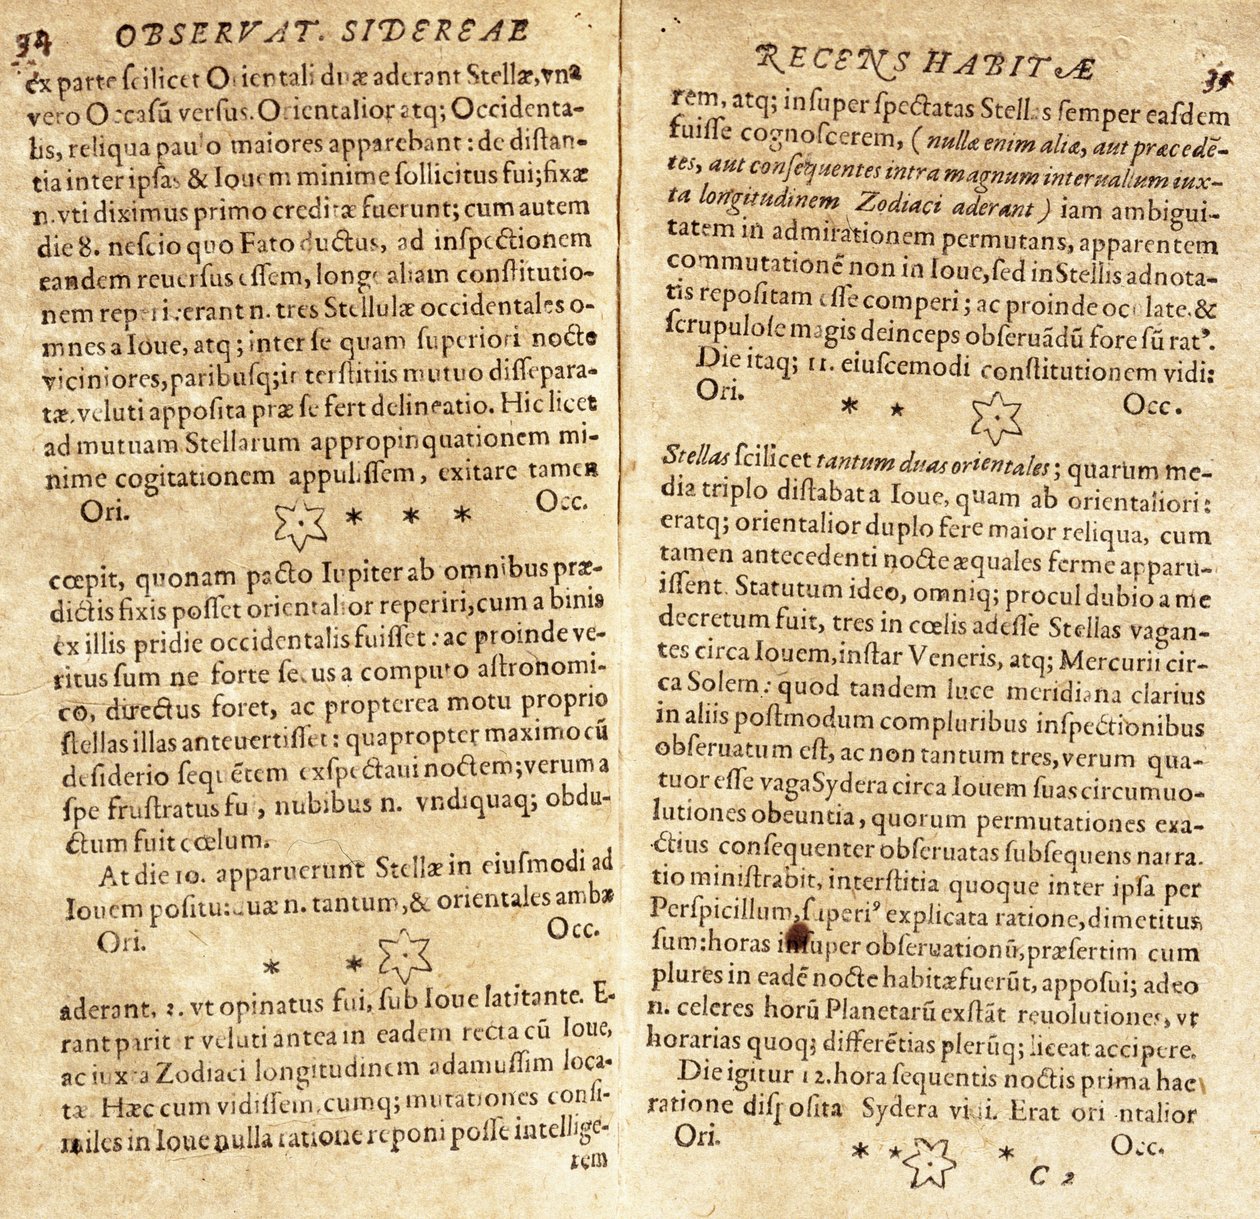 34
OBSERVAT. SIDEREAE
ex parte ſcilicet Orientali duæ aderant Stellæ, vna
vero Occaſũ verſus. Orientalior atq; Occidenta-
lis, reliqua paulo maiores apparebant: de diſtan-
tia inter ipſas & Iouem minime ſollicitus fui; fixæ
n. vti diximus primo creditæ fuerunt; cum autem
die 8. neſcio quo Fato ductus, ad inſpectionem
eandem reuerſus eſſem, longe aliam conſtitutio-
nem reperi: erant n. tres Stellulæ occidentales o-
mnes a Ioue, atq; inter ſe quam ſuperiori nocte
viciniores, paribuſq; interſtitiis mutuo diſſepara-
tæ, veluti appoſita præ ſe fert delineatio. Hic licet
ad mutuam Stellarum appropinquationem mi-
nime cogitationem appuliſſem, exitare tamen
Ori. * * * Occ.
cœpit, quonam pacto Iupiter ab omnibus præ-
dictis fixis poſſet orientalior reperiri, cum a binis
ex illis pridie occidentalis fuiſſet: ac proinde ve-
ritus ſum ne forte ſecus a computo aſtronomi-
co, directus foret, ac propterea motu proprio
ſtellas illas anteuertiſſet: quapropter maximo cũ
deſiderio ſequẽtem exſpectaui noctem; verum a
ſpe fruſtratus fui, nubibus n. vndiquaq; obdu-
ctum fuit cœlum.
At die 10. apparuerunt Stellæ in eiuſmodi ad
Iouem poſitu: duæ n. tantum, & orientales ambæ
Ori. * * Occ.
aderant. 3. vt opinatus fui, ſub Ioue latitante. E-
rant pariter veluti antea in eadem recta cũ Ioue,
ac iuxta Zodiaci longitudinem adamuſſim loca-
tæ Hæc cum vidiſſem, cumq; mutationes conſi-
miles in Ioue nulla ratione reponi poſſe intellige-
rem
RECENS HABITÆ
35
rem, atq; inſuper ſpectatas Stellas ſemper eaſdem
fuiſſe cognoſcerem, (nullæ enim aliæ, aut præcedẽ-
tes, aut conſequentes intra magnum interuallum iux-
ta longitudinem Zodiaci aderant) iam ambigui-
tatem in admirationem permutans, apparentem
commutationẽ non in Ioue, ſed in Stellis adnota-
tis repoſitam eſſe comperi; ac proinde oculate & 
ſcrupuloſe magis deinceps obſeruãdũ fore ſũ ratꝰ.
Die itaq; 11. eiuſcemodi conſtitutionem vidi:
Ori. * * Occ.
Stellas ſcilicet tantum duas orientales; quarum me-
dia triplo diſtabat a Ioue, quam ab orientaliori:
eratq; orientalior duplo fere maior reliqua, cum
tamen antecedenti nocte æquales ferme apparu-
iſſent. Statutum ideo, omniq; procul dubio a me
decretum fuit, tres in cœlis adeſſe Stellas vagan-
tes circa Iouem, inſtar Veneris, atq; Mercurii cir-
ca Solem: quod tandem luce meridiana clarius
in aliis poſtmodum compluribus inſpectionibus
obſeruatum eſt, ac non tantum tres, verum qua-
tuor eſſe vaga Sydera circa Iouem ſuas circumuo-
lutiones obeuntia, quorum permutationes exa-
ctius conſequenter obſeruatas ſubſequens narra.
tio miniſtrabit, interſtitia quoque inter ipſa per
Perſpicillum, ſuperiꝰ explicata ratione, dimetitus
ſum: horas inſuper obſeruationũ, præſertim cum
plures in eadẽ nocte habitæ fuerũt, appoſui; adeo
n. celeres horũ Planetarũ exſtãt reuolutiones, vt
horarias quoq; differẽtias plerũq; liceat accipere.
Die igitur 12. hora ſequentis noctis prima hac
ratione diſpoſita Sydera vidi. Erat orientalior
Ori. * * * Occ.
C 2